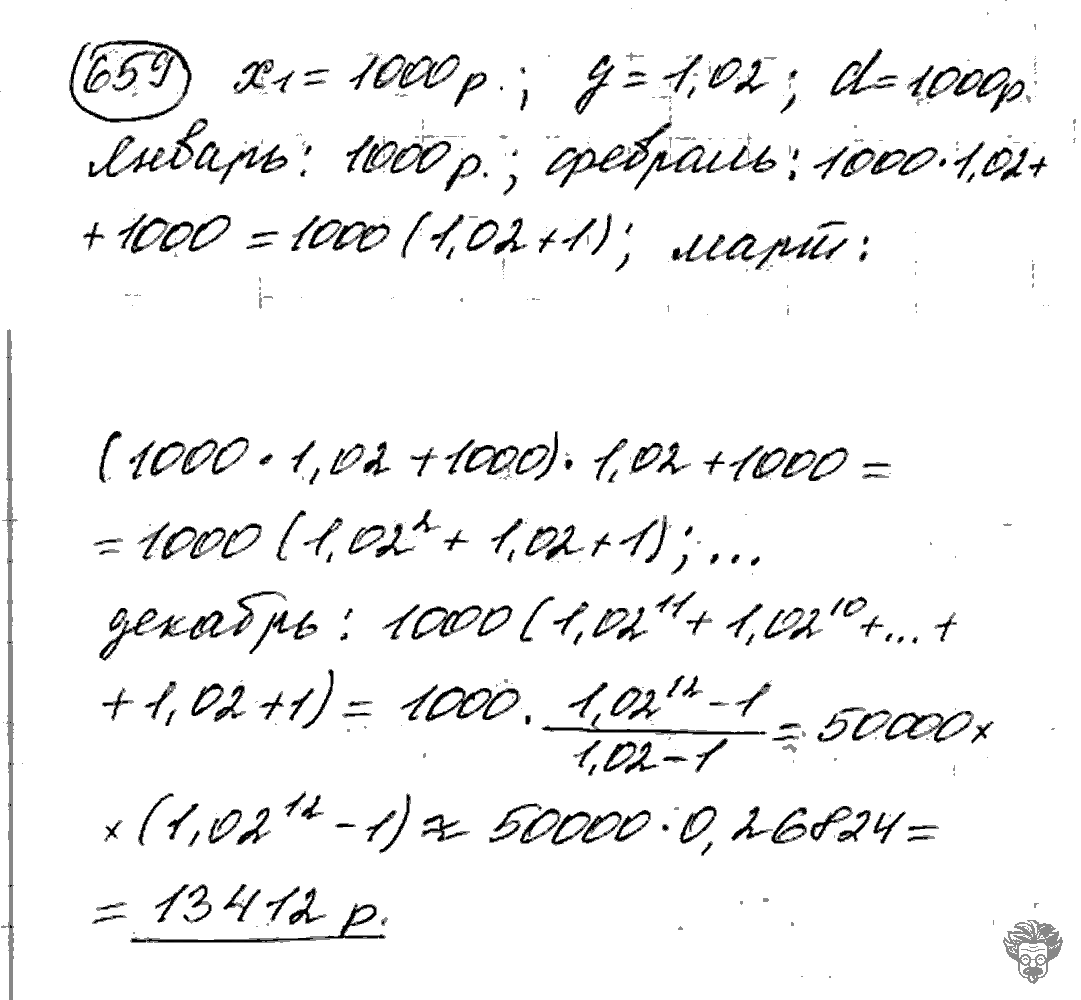 659 x₁ = 1000 р.; g = 1,02; d = 1000р.
январь: 1000 р.; февраль: 1000 · 1,02 +
+ 1000 = 1000 (1,02 + 1); март:
(1000 · 1,02 + 1000) · 1,02 + 1000 =
= 1000 (1,02² + 1,02 + 1); ...
декабрь: 1000 (1,02¹¹ + 1,02¹⁰ + ... +
+ 1,02 + 1) = 1000 · (1,02¹² - 1)/(1,02 - 1) = 50000 ×
× (1,02¹² - 1) ≈ 50000 · 0,26824 =
= 13412 р.